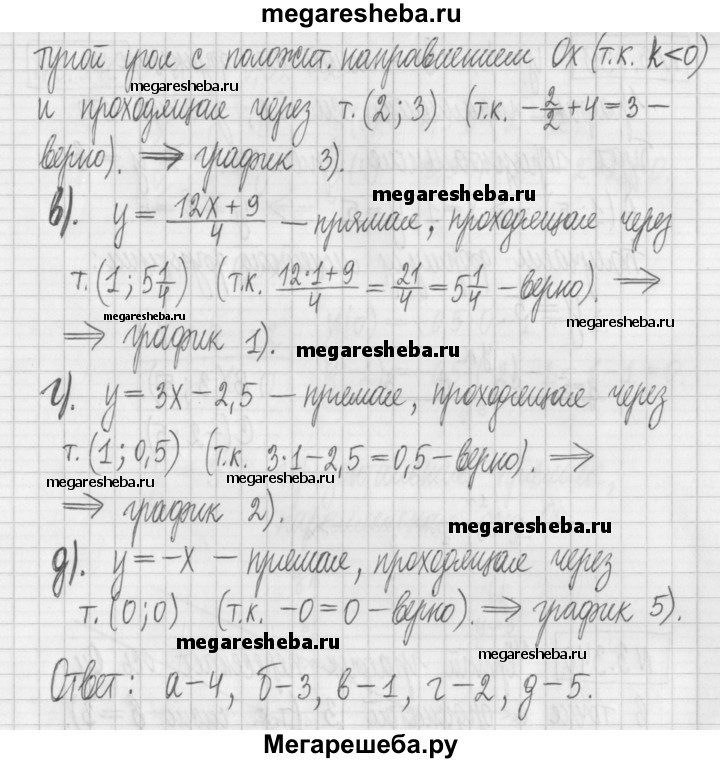 megaresheba.ru
тупой угол с положит. направлением Ox (т.к. k<0)
megaresheba.ru
и проходящая через т. (2; 3) (т.к. -2/2+4=3 –
верно). ⟹ график 3).
megaresheba.ru
в). y = (12x+9)/4 – прямая, проходящая через
т. (1; 5 1/4) (т.к. (12·1+9)/4 = 21/4 = 5 1/4 – верно). ⟹
megaresheba.ru megaresheba.ru
⟹ график 1).
megaresheba.ru
г). y = 3x – 2,5 – прямая, проходящая через
т. (1; 0,5) (т.к. 3·1–2,5 = 0,5 – верно). ⟹
megaresheba.ru megaresheba.ru
⟹ график 2).
megaresheba.ru
д). y = –x – прямая, проходящая через
т. (0; 0) (т.к. –0=0 – верно). ⟹ график 5).
megaresheba.ru
megaresheba.ru
Ответ: а–4, б–3, в–1, г–2, д–5.
Мегарешеба.ру